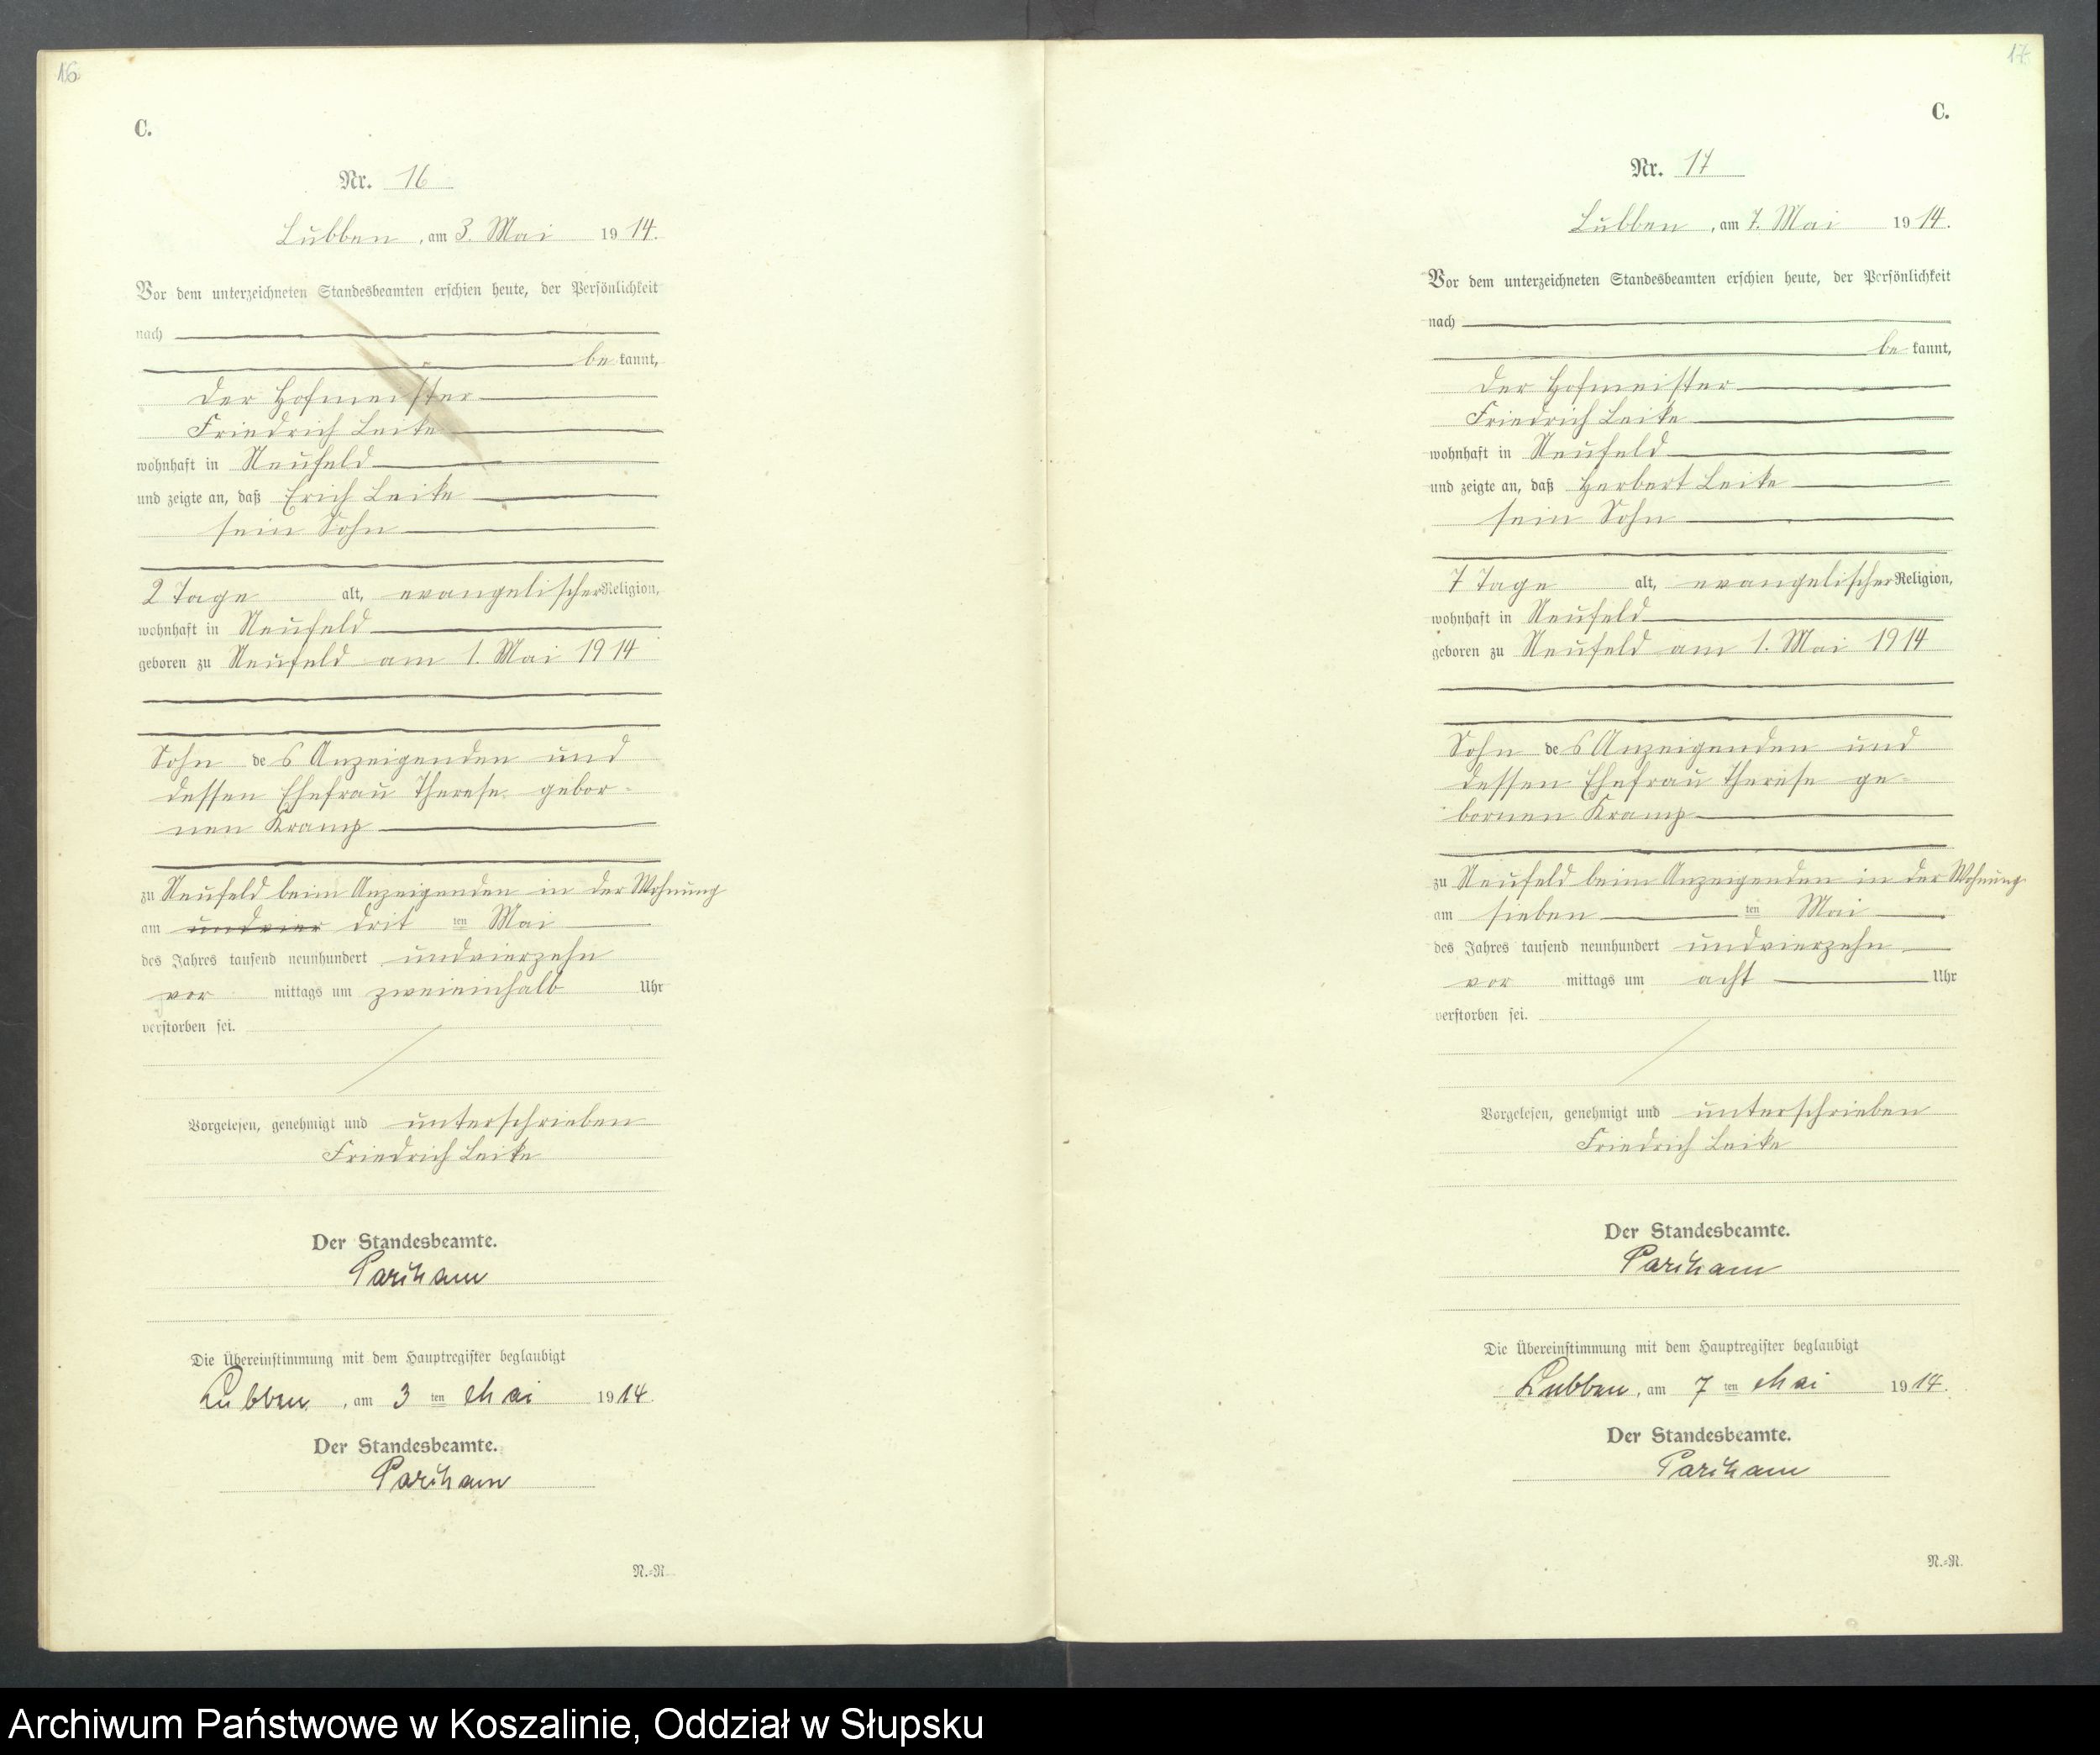 16
C.
Nr. 16
Lübben, am 3. Mai 1914.
Vor dem unterzeichneten Standesbeamten erschien heute, der Persönlichkeit
nach
bekannt,
der Hofmeister
Friedrich Leike
wohnhaft in Neufeld
und zeigte an, daß Erich Leike
sein Sohn
2 Tage alt, evangelischer Religion,
wohnhaft in Neufeld
geboren zu Neufeld am 1. Mai 1914
Sohn des Anzeigenden und
dessen Ehefrau Therese gebor-
nen Kramp
zu Neufeld beim Anzeigenden in der Wohnung
am undvier drit ten Mai
des Jahres tausend neunhundert undvierzehn
vor mittags um zweieinhalb Uhr
verstorben sei.
Vorgelesen, genehmigt und unterschrieben
Friedrich Leike
Der Standesbeamte.
Die Übereinstimmung mit dem Hauptregister beglaubigt
Lübben, am 3 ten Mai 1914.
Der Standesbeamte.
N.=R.
17
C.
Nr. 17
Lübben, am 7. Mai 1914.
Vor dem unterzeichneten Standesbeamten erschien heute, der Persönlichkeit
nach
bekannt,
der Hofmeister
Friedrich Leike
wohnhaft in Neufeld
und zeigte an, daß Herbert Leike
sein Sohn
7 Tage alt, evangelischer Religion,
wohnhaft in Neufeld
geboren zu Neufeld am 1. Mai 1914
Sohn des Anzeigenden und
dessen Ehefrau Therese ge-
bornen Kramp
zu Neufeld beim Anzeigenden in der Wohnung
am sieben ten Mai
des Jahres tausend neunhundert undvierzehn
vor mittags um acht Uhr
verstorben sei.
Vorgelesen, genehmigt und unterschrieben
Friedrich Leike
Der Standesbeamte.
Die Übereinstimmung mit dem Hauptregister beglaubigt
Lübben, am 7 ten Mai 1914.
Der Standesbeamte.
N.=R.
Archiwum Państwowe w Koszalinie, Oddział w Słupsku